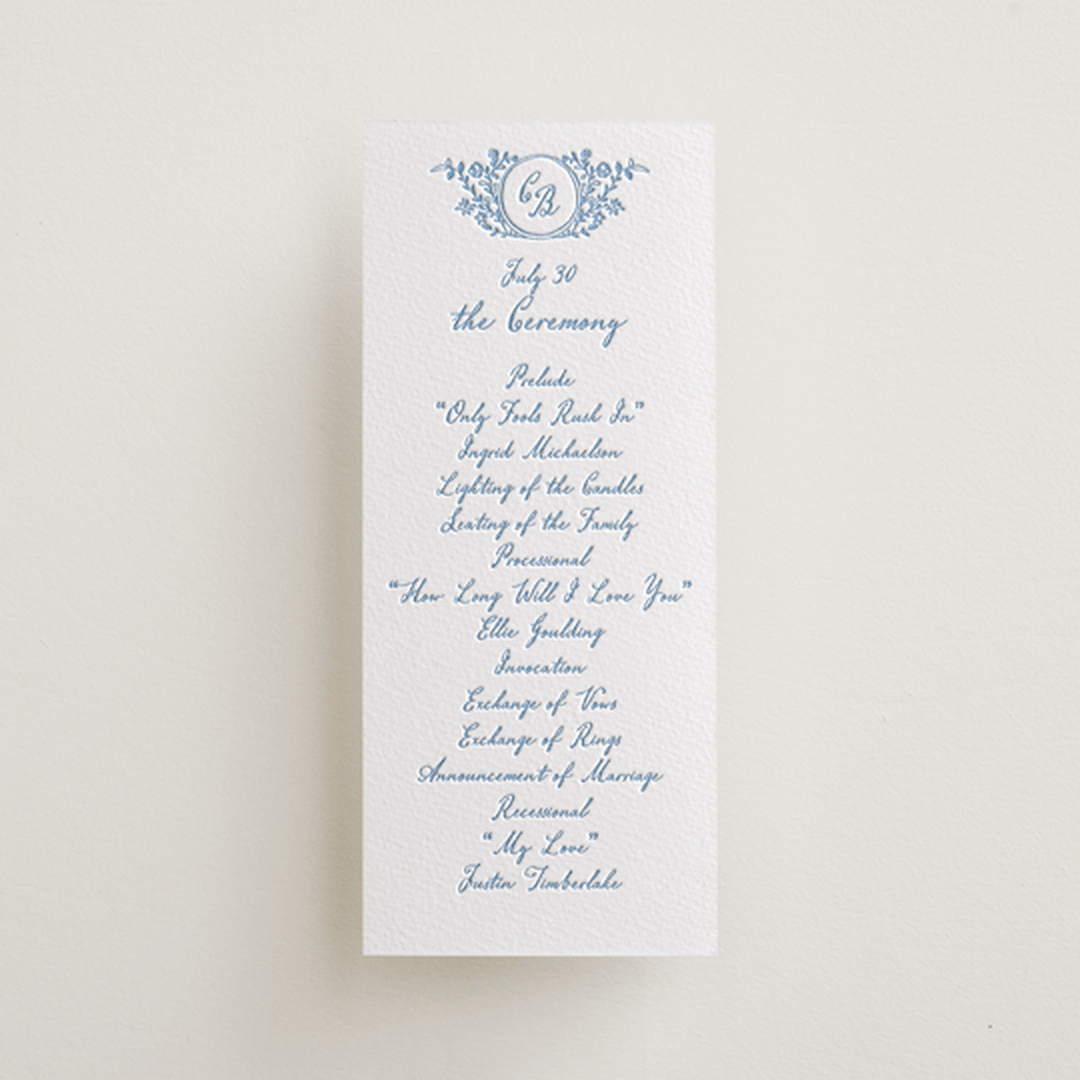 CB
July 30
the Ceremony
Prelude
“Only Fools Rush In”
Ingrid Michaelson
Lighting of the Candles
Seating of the Family
Processional
“How Long Will I Love You”
Ellie Goulding
Invocation
Exchange of Vows
Exchange of Rings
Announcement of Marriage
Recessional
“My Love”
Justin Timberlake